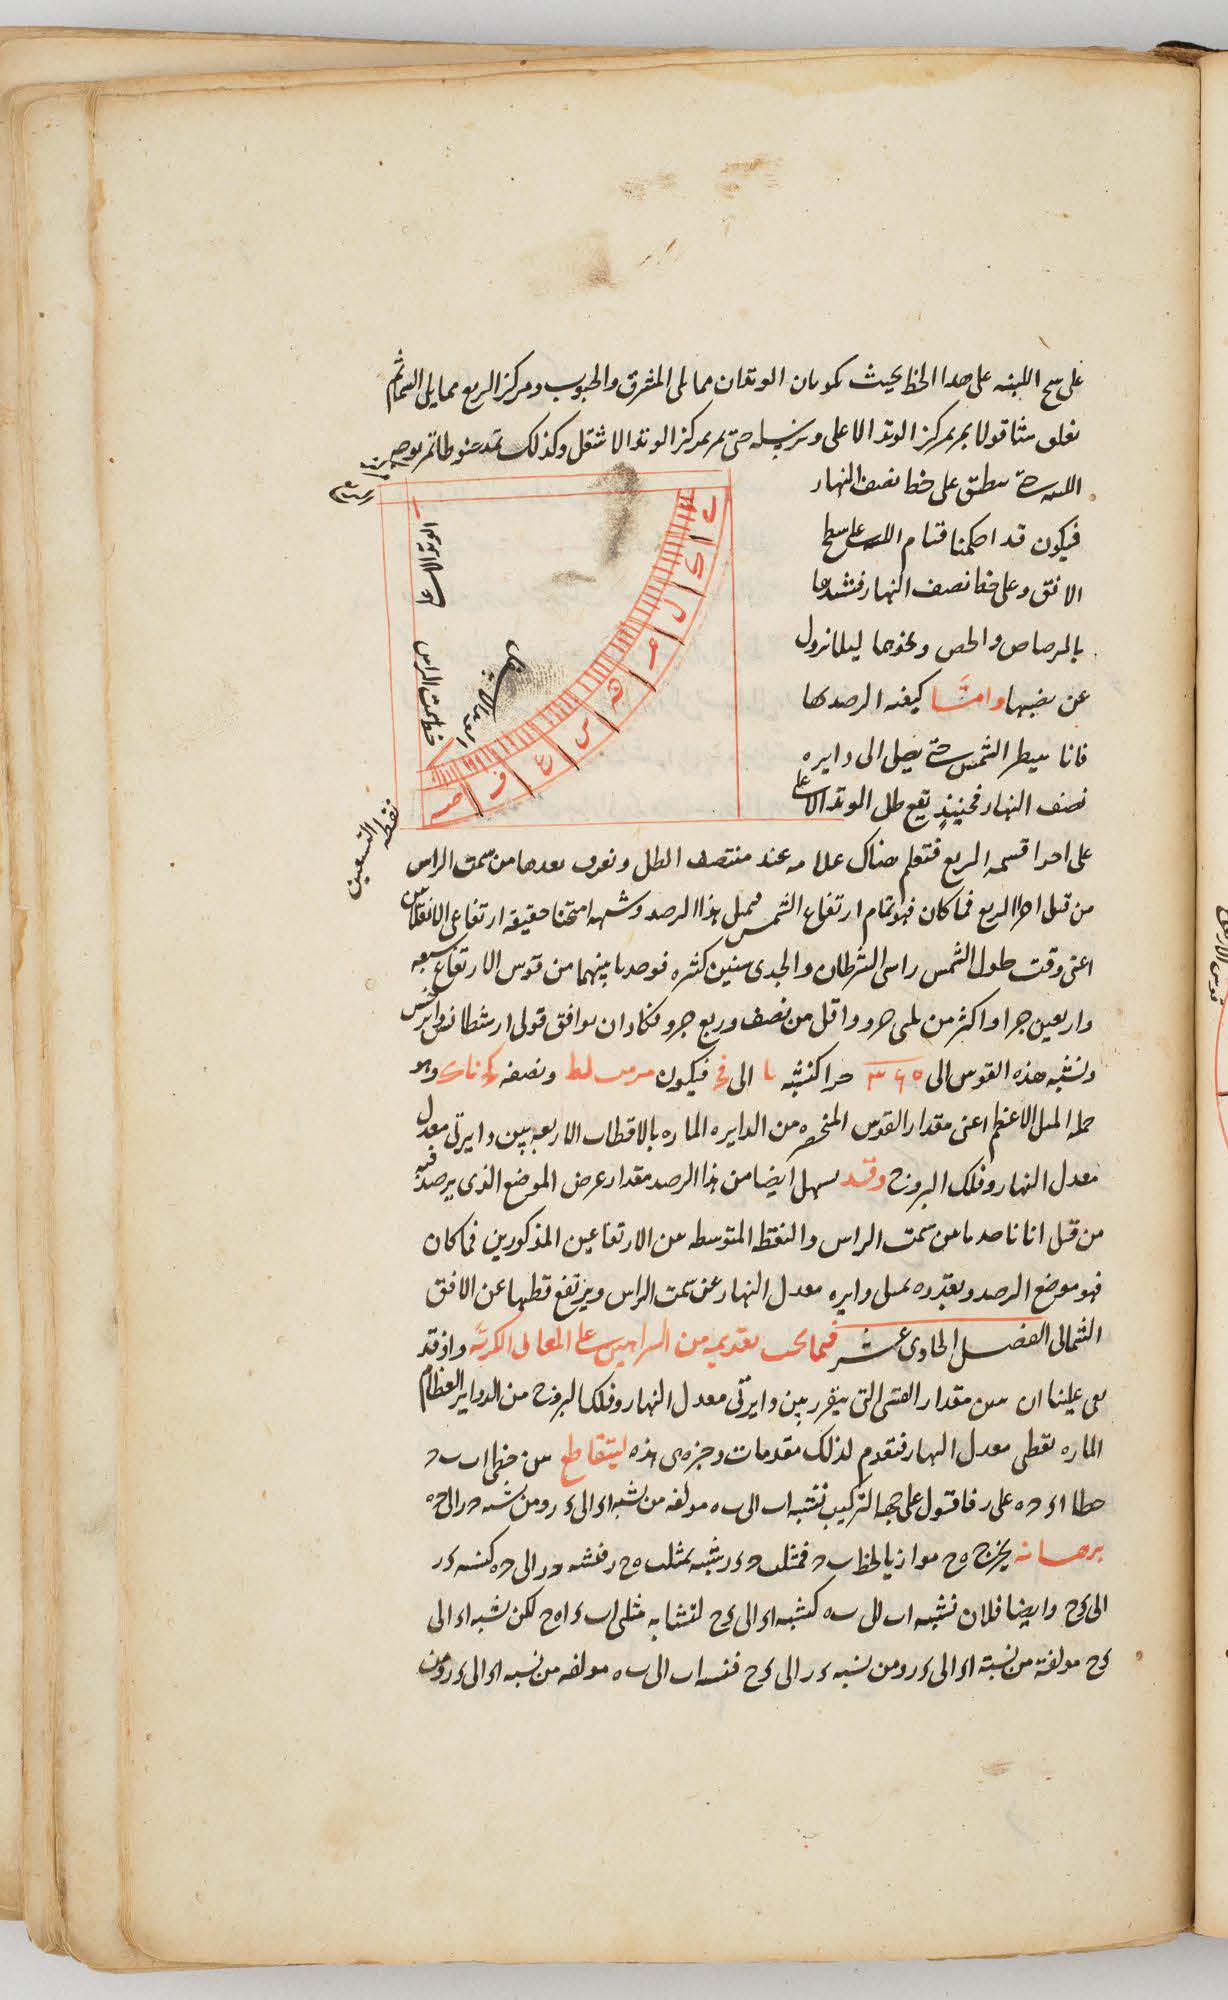 على سطح اللبنه على هدا الخط بحيث يكونان الوتدان مما يلى المشرق والجنوب ومركز الربع مما يلى السما ثم
نعلق شاقولا بمركز الوتد الاعلى ونرسله حتى يمر بمركز الوتد الاسفل وكذلك
اللبنه حتى ينطبق على خط نصف النهار
فيكون قد احكمنا قيام اللبنه على سطح
الافق وعلى خط نصف النهار فنشدها
بالرصاص والجص ونحوهما ليلا تزول
عن نصبها وامّا كيفيه الرصد بها
فانا ننتظر الشمس حتى يصل الى دايره
نصف النهار فحينيذٍ يقع ظل الوتد الاعلى
على احد اقسمه الربع فنعلم هناك علامه عند منتصف الظل ونعرف بعدها من سمت الراس
من قبل اجزا الربع فما كان فهو تمام ارتفاع الشمس فبمثل هذا الرصد وشبهه امتحنا حقيقه ارتفاعى الانقلابين
اعنى وقت حلول الشمس راس السرطان والجدى سنين كثيره فوجدنا بينهما من قوس الارتفاع سبعه
واربعين جزا واكثر من ثلثى جزو واقل من نصف وربع جزو فكاد ان يوافق قول ارسطانس وابرخس
ونسبه هذه القوس الى ٣٦٥ جزا كنسبه يا الى فج فيكون مز مب لط ونصفه كج نا ك وهو
جمله الميل الاعظم اعنى مقدار القوس المنحصره من الدايره الماره بالاقطاب الاربعه بين دايرتى معدل
معدل النهار وفلك البروج وقد يسهل ايضا من هذا الرصد مقدار عرض الموضع الذى يرصد فيه
من قبل انا ناخذ ما بين سمت الراس والنقطه المتوسطه بين الارتفاعين المذكورين فما كان
فهو موضع الرصد وبقدره يميل دايره معدل النهار عن سمت الراس ويرتفع قطبها عن الافق
الشمالى الفصل الحادى عشر فيما يجب تقديمه من البراهين على المعانى الكريّه واذ قد
بقى علينا ان نبين مقدار القسى التى يتقرر بين دايرتى معدل النهار وفلك البروج من الدواير العظام
الماره بقطبى معدل النهار فنقدم لذلك مقدمات وجيزه هى هذه ليتقاطع بين خطى اب ب ح
خطا اد ح ه على ر فاقول على جهه التركيب نسبه اب الى ب ه مولفه من نسبه اد الى د ر ومن نسبه ح ر الى ح ه
برهانه يخرج ه ح موازيا لخط ب ح فمثلث ح د ر شبيه بمثلث ه ح ر فنسبه ح ر الى ح ه كنسبه د ر
الى د ح وايضا فلان نسبه اب الى ب ه كنسبه اد الى د ح لتشابه مثلثى اب د ا ه ح لكن نسبه اد الى
د ح مولفة من نسبة اد الى د ر ومن نسبه د ر الى د ح فنسبه اب الى ب ه مولفه من نسبه اد الى د ر ومن
ى
ك
ل
م
ه
س
ع
ف
ص
خط سمت الراس
الوتد الاسفل
نقطه التسعين